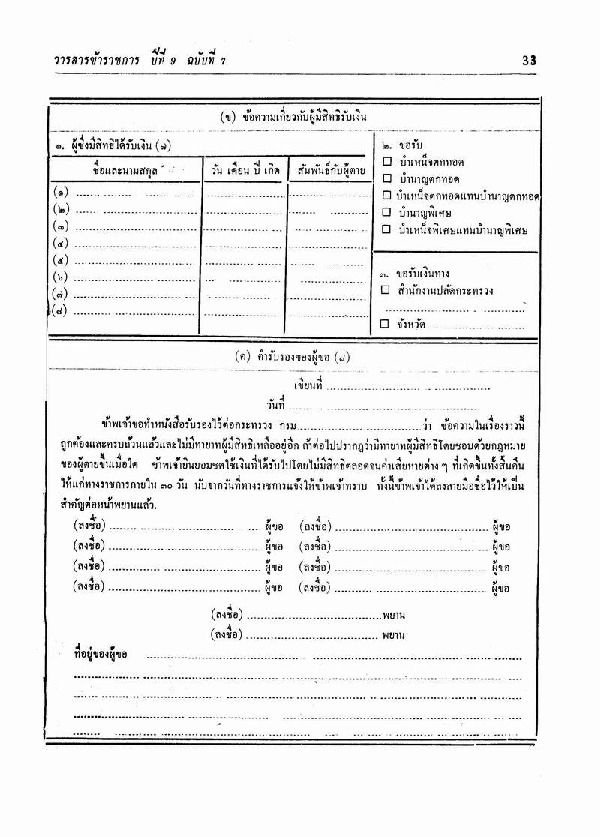 วารสารข้าราชการ ปีที่ ๙ ฉบับที่ ๗
33
(ข) ข้อความเกี่ยวกับผู้มีสิทธิรับเงิน
๑. ผู้ซึ่งมีสิทธิได้รับเงิน (๗)
ชื่อและนามสกุล
วัน เดือน ปี เกิด
สัมพันธ์กับผู้ตาย
(๑)
(๒)
(๓)
(๔)
(๕)
(๖)
(๗)
(๘)
๒. ขอรับ
บำเหน็จตกทอด
บำนาญตกทอด
บำเหน็จตกทอดแทนบำนาญตกทอด
บำนาญพิเศษ
บำเหน็จพิเศษแทนบำนาญพิเศษ
๓. ขอรับเงินทาง
สำนักงานปลัดกระทรวง
จังหวัด
(ค) คำรับรองของผู้ขอ (๘)
เขียนที่
วันที่
ข้าพเจ้าขอทำหนังสือรับรองไว้ต่อกระทรวง กรม ว่า ข้อความในเรื่องราวนี้
ถูกต้องและครบถ้วนแล้วและไม่มีทายาทผู้มีสิทธิเหลืออยู่อีก ถ้าต่อไปปรากฏว่ามีทายาทผู้มีสิทธิโดยชอบด้วยกฎหมาย
ของผู้ตายขึ้นเมื่อใด ข้าพเจ้ายินยอมชดใช้เงินที่ได้รับไปโดยไม่มีสิทธิตลอดจนค่าเสียหายต่าง ๆ ที่เกิดขึ้นทั้งสิ้นคืน
ให้แก่ทางราชการภายใน ๓๐ วัน นับจากวันที่ทางราชการแจ้งให้ข้าพเจ้าทราบ ทั้งนี้ข้าพเจ้าได้ลงลายมือชื่อไว้ให้เป็น
สำคัญต่อหน้าพยานแล้ว.
(ลงชื่อ) ผู้ขอ (ลงชื่อ) ผู้ขอ
(ลงชื่อ) ผู้ขอ (ลงชื่อ) ผู้ขอ
(ลงชื่อ) ผู้ขอ (ลงชื่อ) ผู้ขอ
(ลงชื่อ) ผู้ขอ (ลงชื่อ) ผู้ขอ
(ลงชื่อ) พยาน
(ลงชื่อ) พยาน
ที่อยู่ของผู้ขอ